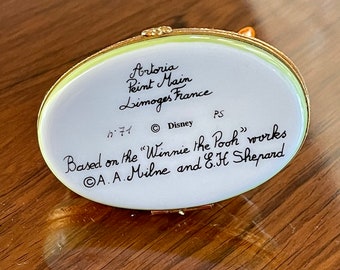 Artoria
Peint Main
Limoges France
n°71 © Disney PS
Based on the "Winnie the Pooh" works
© A.A. Milne and E.H Shepard